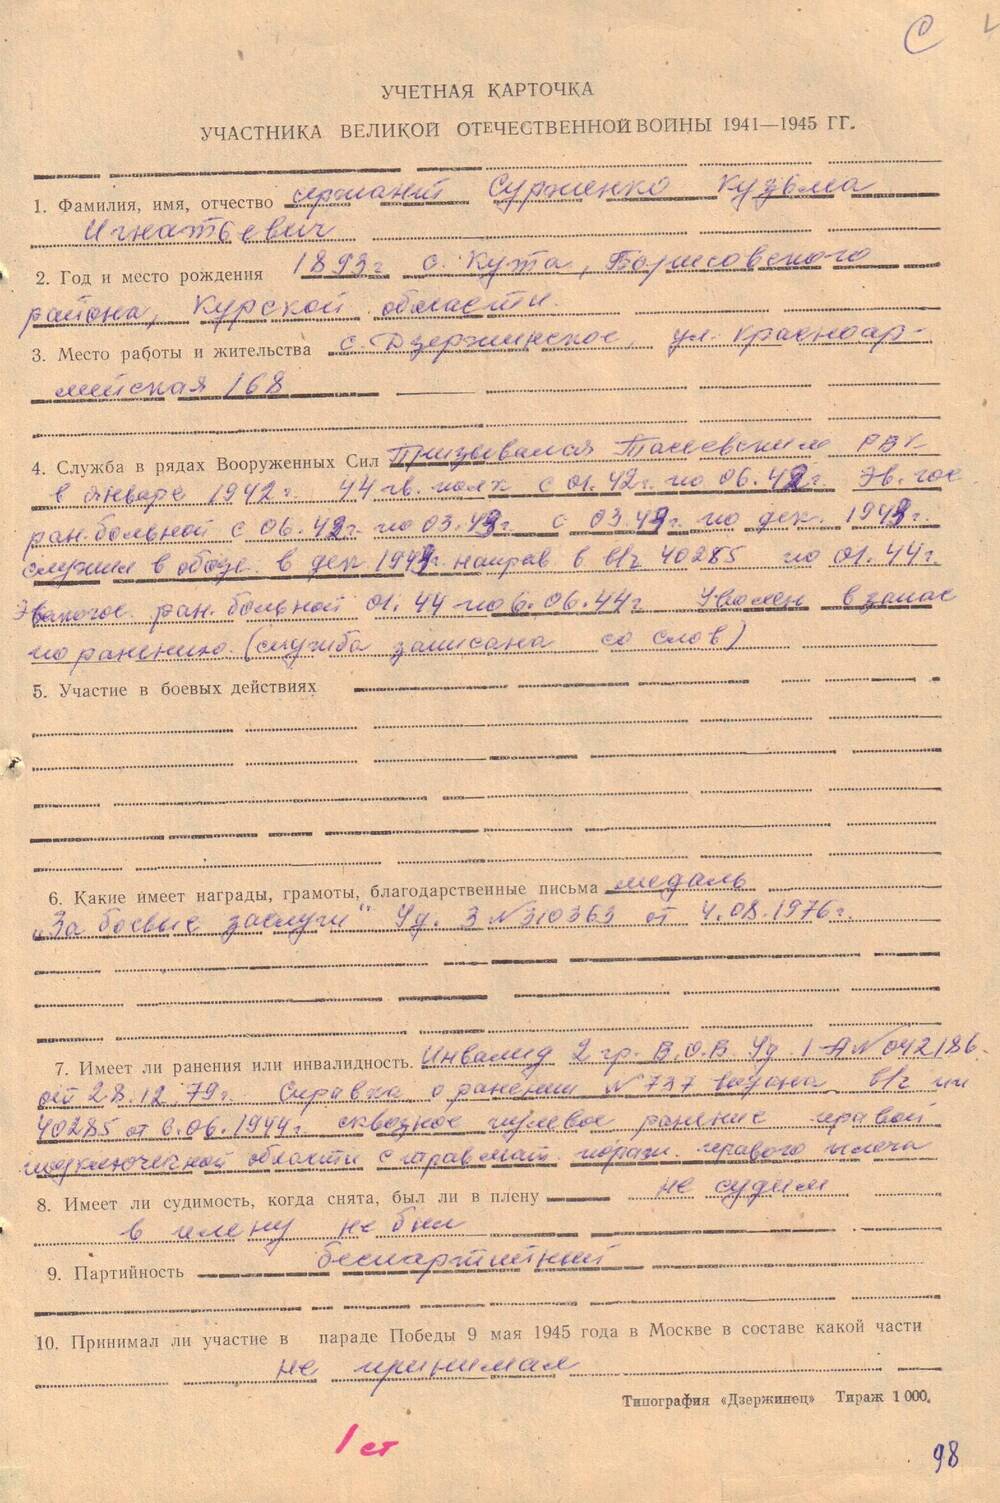 С
УЧЕТНАЯ КАРТОЧКА
УЧАСТНИКА ВЕЛИКОЙ ОТЕЧЕСТВЕННОЙ ВОЙНЫ 1941—1945 ГГ.
1. Фамилия, имя, отчество сержант Сурженко Кузьма
Игнатьевич
2. Год и место рождения 1893г с. Кута, Борисовского
района, Курской области.
3. Место работы и жительства с. Дзержинское, ул. Красноар-
мейская 168
4. Служба в рядах Вооруженных Сил Призывался РВК
в январе 1942г. 44 гв. полк с 01.42г. по 06.42г. Эв. гос
ран. больной с 06.42г. по 03.43г. с 03.43г. по дек. 1943г.
служил в обозе. в дек. 1943г. направ в в/ч 40285 по 01.44г
Эвакогос. ран. больной 01.44 по 6.06.44г Уволен в запас
по ранению. (служба записана со слов)
5. Участие в боевых действиях
6. Какие имеет награды, грамоты, благодарственные письма медаль
„За боевые заслуги" Уд. З №310363 от 4.08.1976г.
7. Имеет ли ранения или инвалидность. Инвалид 2 гр. В.О.В. Уд. I-А №042186
от 28.12.79г. Справка о ранении №737 выдана в/ч пп
40285 от 6.06.1944г. сквозное пулевое ранение правой
подключечной области с травмат. пораж. правого плеча
8. Имеет ли судимость, когда снята, был ли в плену не судим
в плену не был
9. Партийность беспартийный
10. Принимал ли участие в параде Победы 9 мая 1945 года в Москве в составе какой части
не принимал
Типография «Дзержинец» Тираж 1 000.
1 ст
98